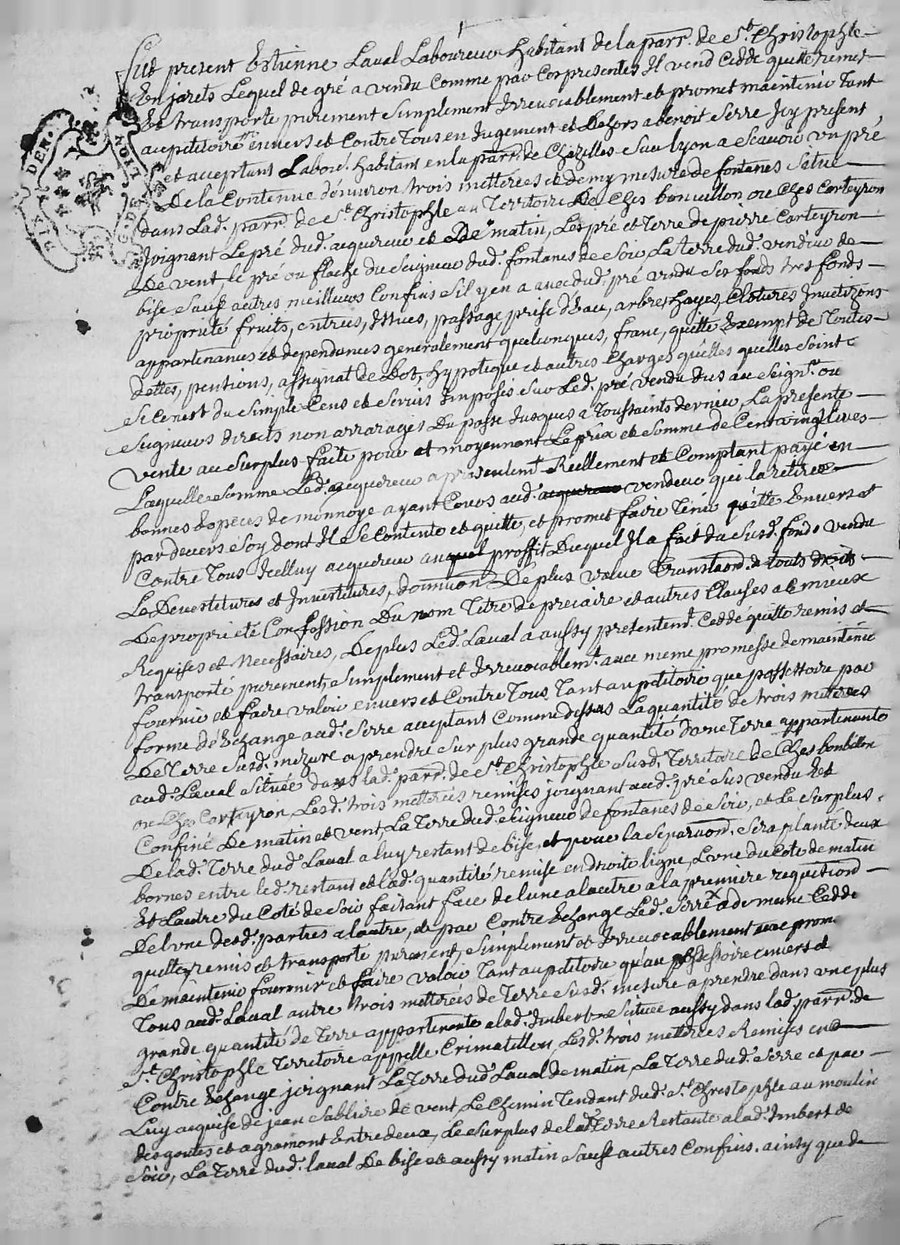 DIX DEN. G. DE LION
Fut present Estienne Laval Laboureur habitant de la parr. de St. Christophle
En jarets Lequel de gré a vendu Comme par Ces presentes Il vend Cedde quitte remet
Et transporte purement simplement Irrevocablement et promet maintenir Tant
au petitoire envers et Contre Tous en Jugement et Dehors a benoit Serre Icy present
et acceptant Labour. habitant en la parr. de Chazelles Sur lyon a Scavoir un pré
De la Contenue d'environ trois metterées et demy mesure de fontanes Situé
dans Lad. parr. de St. Christophle au Territoire De Ches bonuillon ou Ches Corteyron
Joignant Le pré dud. acquereur et De matin, Les pré et Terre de pierre Corteyron
De vent, le pré ou flache du Seigneur dud. fontanes de Soir, La Terre dud. vendeur de
bise Sauf autres meilleurs Confins S'il y en a avec dud. pré vendu Ses fonds tres fonds
proprieté fruits, entrées, Issues, passage, prise d'Eau, arbres hayes, Clotures Invetizons
appartenances et dependances generalement quelconques, franc, quitte Exempt de Toutes
dettes, pentions, assignat de Dot, hypoteque et autres Charges qu'elles quelles Soint
Si Ce n'est du Simple Cens et Servis Imposés Sur Led. pré vendu dus au Seignr. ou
Seigneurs directs non arrarages Du passé Jusques a Toussaints dernier, La presente
vente au Surplus faite pour et moyennant Le prix et Somme de Cent vingt livres
Laquelle Somme Led. acquereur a presentemt. Reellement et Comptant payé en
bonnes Especes de monnoye ayant Cours aud. acquereur vendeur qui la retirée
par devers Soy dont Il a Se Contente et quitte, et promet faire Tenir quitte Envers et
Contre Tous Icelluy acquereur au proffit Duquel Il a fait du Susd. fonds vendu
Le Devestitures et Investitures, donnaon De plus value Translaon. de touts droits
De proprieté Confession Du nom Titre de precaire et autres Clauses a Ce mieux
Requises et Necessaires, De plus Led. Laval a aussy presentemt. Ceddé quitte remis et
transporté purement, Simplement et Irrevocablemt. avec meme promesse de maintenir
fournir et faire valoir envers et Contre Tous Tant au petitoire que possessoire par
forme d'Echange aud. Serre acceptant Comme dessus La quantité de trois metterées
De Terre Susd. mezure a prendre Sur plus grande quantité d'une Terre appartenante
aud. Laval Située dans lad. parr. de St. Christophle Susd. Territoire de Ches bonbillon
ou Ches Corteyron, Lesd. trois metterées remises joignant aud. pré Sus vendu Et
Confiné De matin et vent La Terre dud. Seigneur de fontanes de Soir, et Le Surplus
De lad. Terre dud. Laval a luy restant de bise, et pour la Separaon. Sera planté deux
bornes entre led. restant et lad. quantité remise en droite ligne, L'une du Cote de matin
Et L'autre du Coté de Soir faisant face de l'une a l'autre a la premiere requition
De l'une desd. parties a l'autre, et par Contre Echange Led. Serre x a de meme Cedde
quitte, remis et transporte purement, Simplement et Irrevocablement avec prome
De maintenir fournir et faire valoir Tant au petitoire qu'au possessoire envers et
Tous aud. Laval autre trois metterées de Terre Susd. mesure a prendre dans une plus
grande quantité de Terre appartenante a lad. Imbert Située aussy dans lad. parr. de
St. Christophle Territoire appellé Crimatellon, Lesd. trois metterées Remises en
Contre Echange joignant La Terre dud. Laval de matin, La Terre dud. Serre et par
Luy acquise de jean Sabliere de vent, Le Chemin Tendant dud. St. Christophle au moulin
des goutes et agramont Entre deux, Le Surplus de lad. Terre Restante a lad. Imbert de
Soir, La Terre dud. laval De bise et aussy matin Sauf autres Confins, ainsy que de